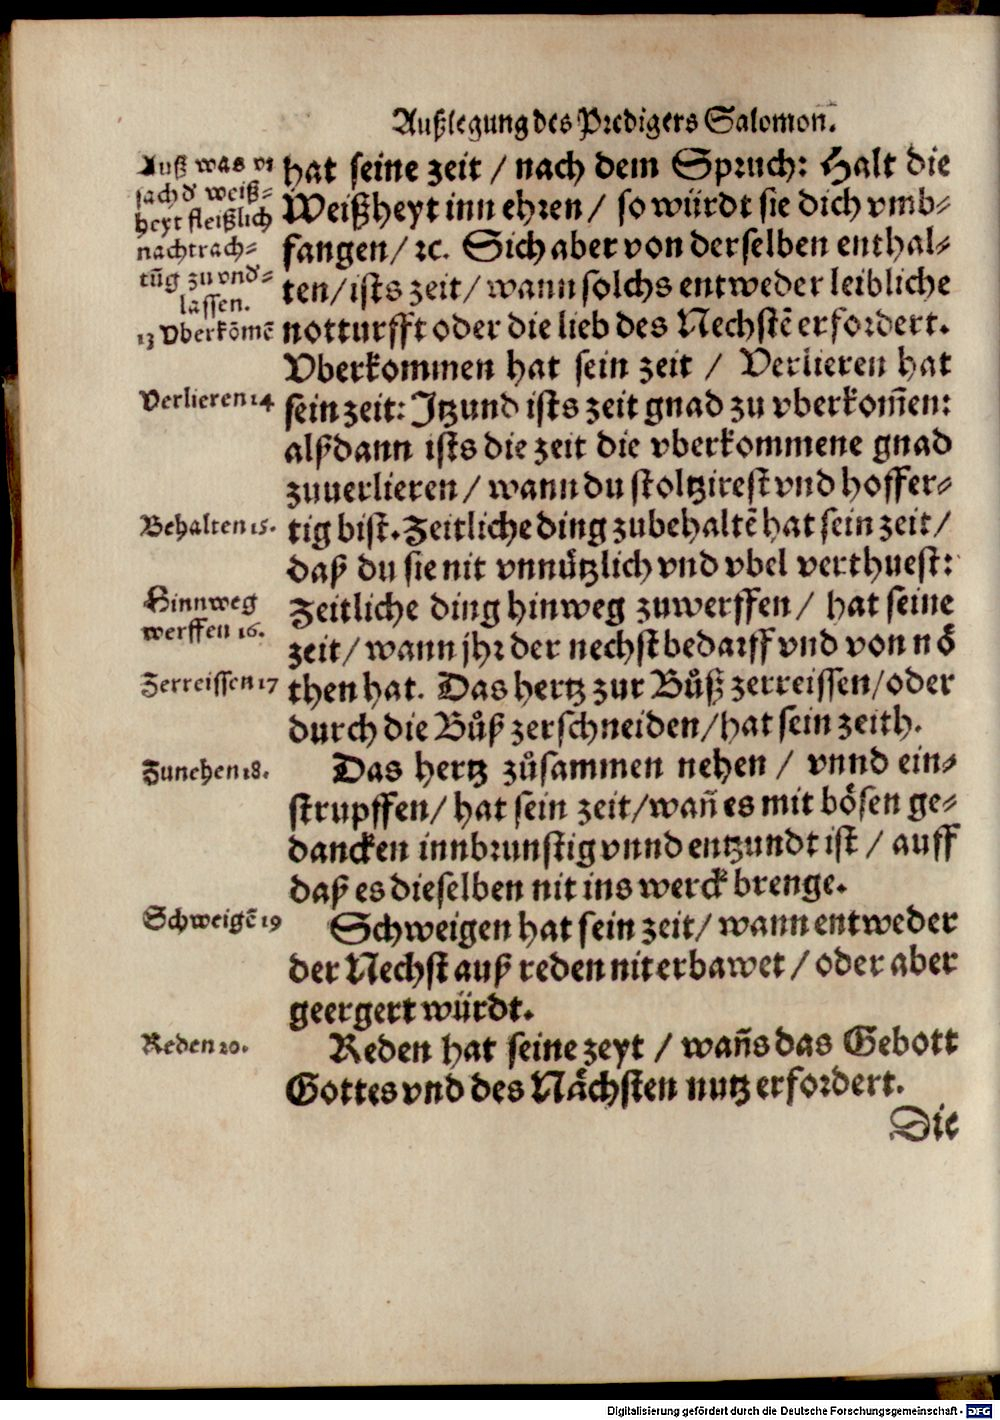 Außlegung des Predigers Salomon.
Auß was vr
sach d' weiß⸗
heyt fleißlich
nachtrach⸗
tūg zu vnd'⸗
lassen.
13 Vberkōmē
Verlieren 14
Behalten 15.
Hinnweg
werffen 16.
Zerreissen 17
Zunehen 18.
Schweigē 19
Reden 20.
hat seine zeit / nach dem Spruch: Halt die
Weißheyt inn ehren / so würdt sie dich vmb⸗
fangen / ꝛc. Sich aber von derselben enthal⸗
ten / ists zeit / wann solchs entweder leibliche
notturfft oder die lieb des Nechstē erfordert.
Vberkommen hat sein zeit / Verlieren hat
sein zeit: Jtzund ists zeit gnad zu vberkom̄en:
alßdann ists die zeit die vberkommene gnad
zuuerlieren / wann du stoltzirest vnd hoffer⸗
tig bist. Zeitliche ding zubehaltē hat sein zeit /
daß du sie nit vnnützlich vnd vbel verthuest:
Zeitliche ding hinweg zuwerffen / hat seine
zeit / wann jhr der nechst bedarff vnd von nö
then hat. Das hertz zur Bůß zerreissen / oder
durch die Bůß zerschneiden / hat sein zeith.
Das hertz zůsammen nehen / vnnd ein⸗
strupffen / hat sein zeit / wan̄ es mit bösen ge⸗
dancken innbrunstig vnnd entzundt ist / auff
daß es dieselben nit ins werck brenge.
Schweigen hat sein zeit / wann entweder
der Nechst auß reden nit erbawet / oder aber
geergert würdt.
Reden hat seine zeyt / wan̄s das Gebott
Gottes vnd des Nächsten nutz erfordert.
Die
Digitalisierung gefördert durch die Deutsche Forschungsgemeinschaft - DFG